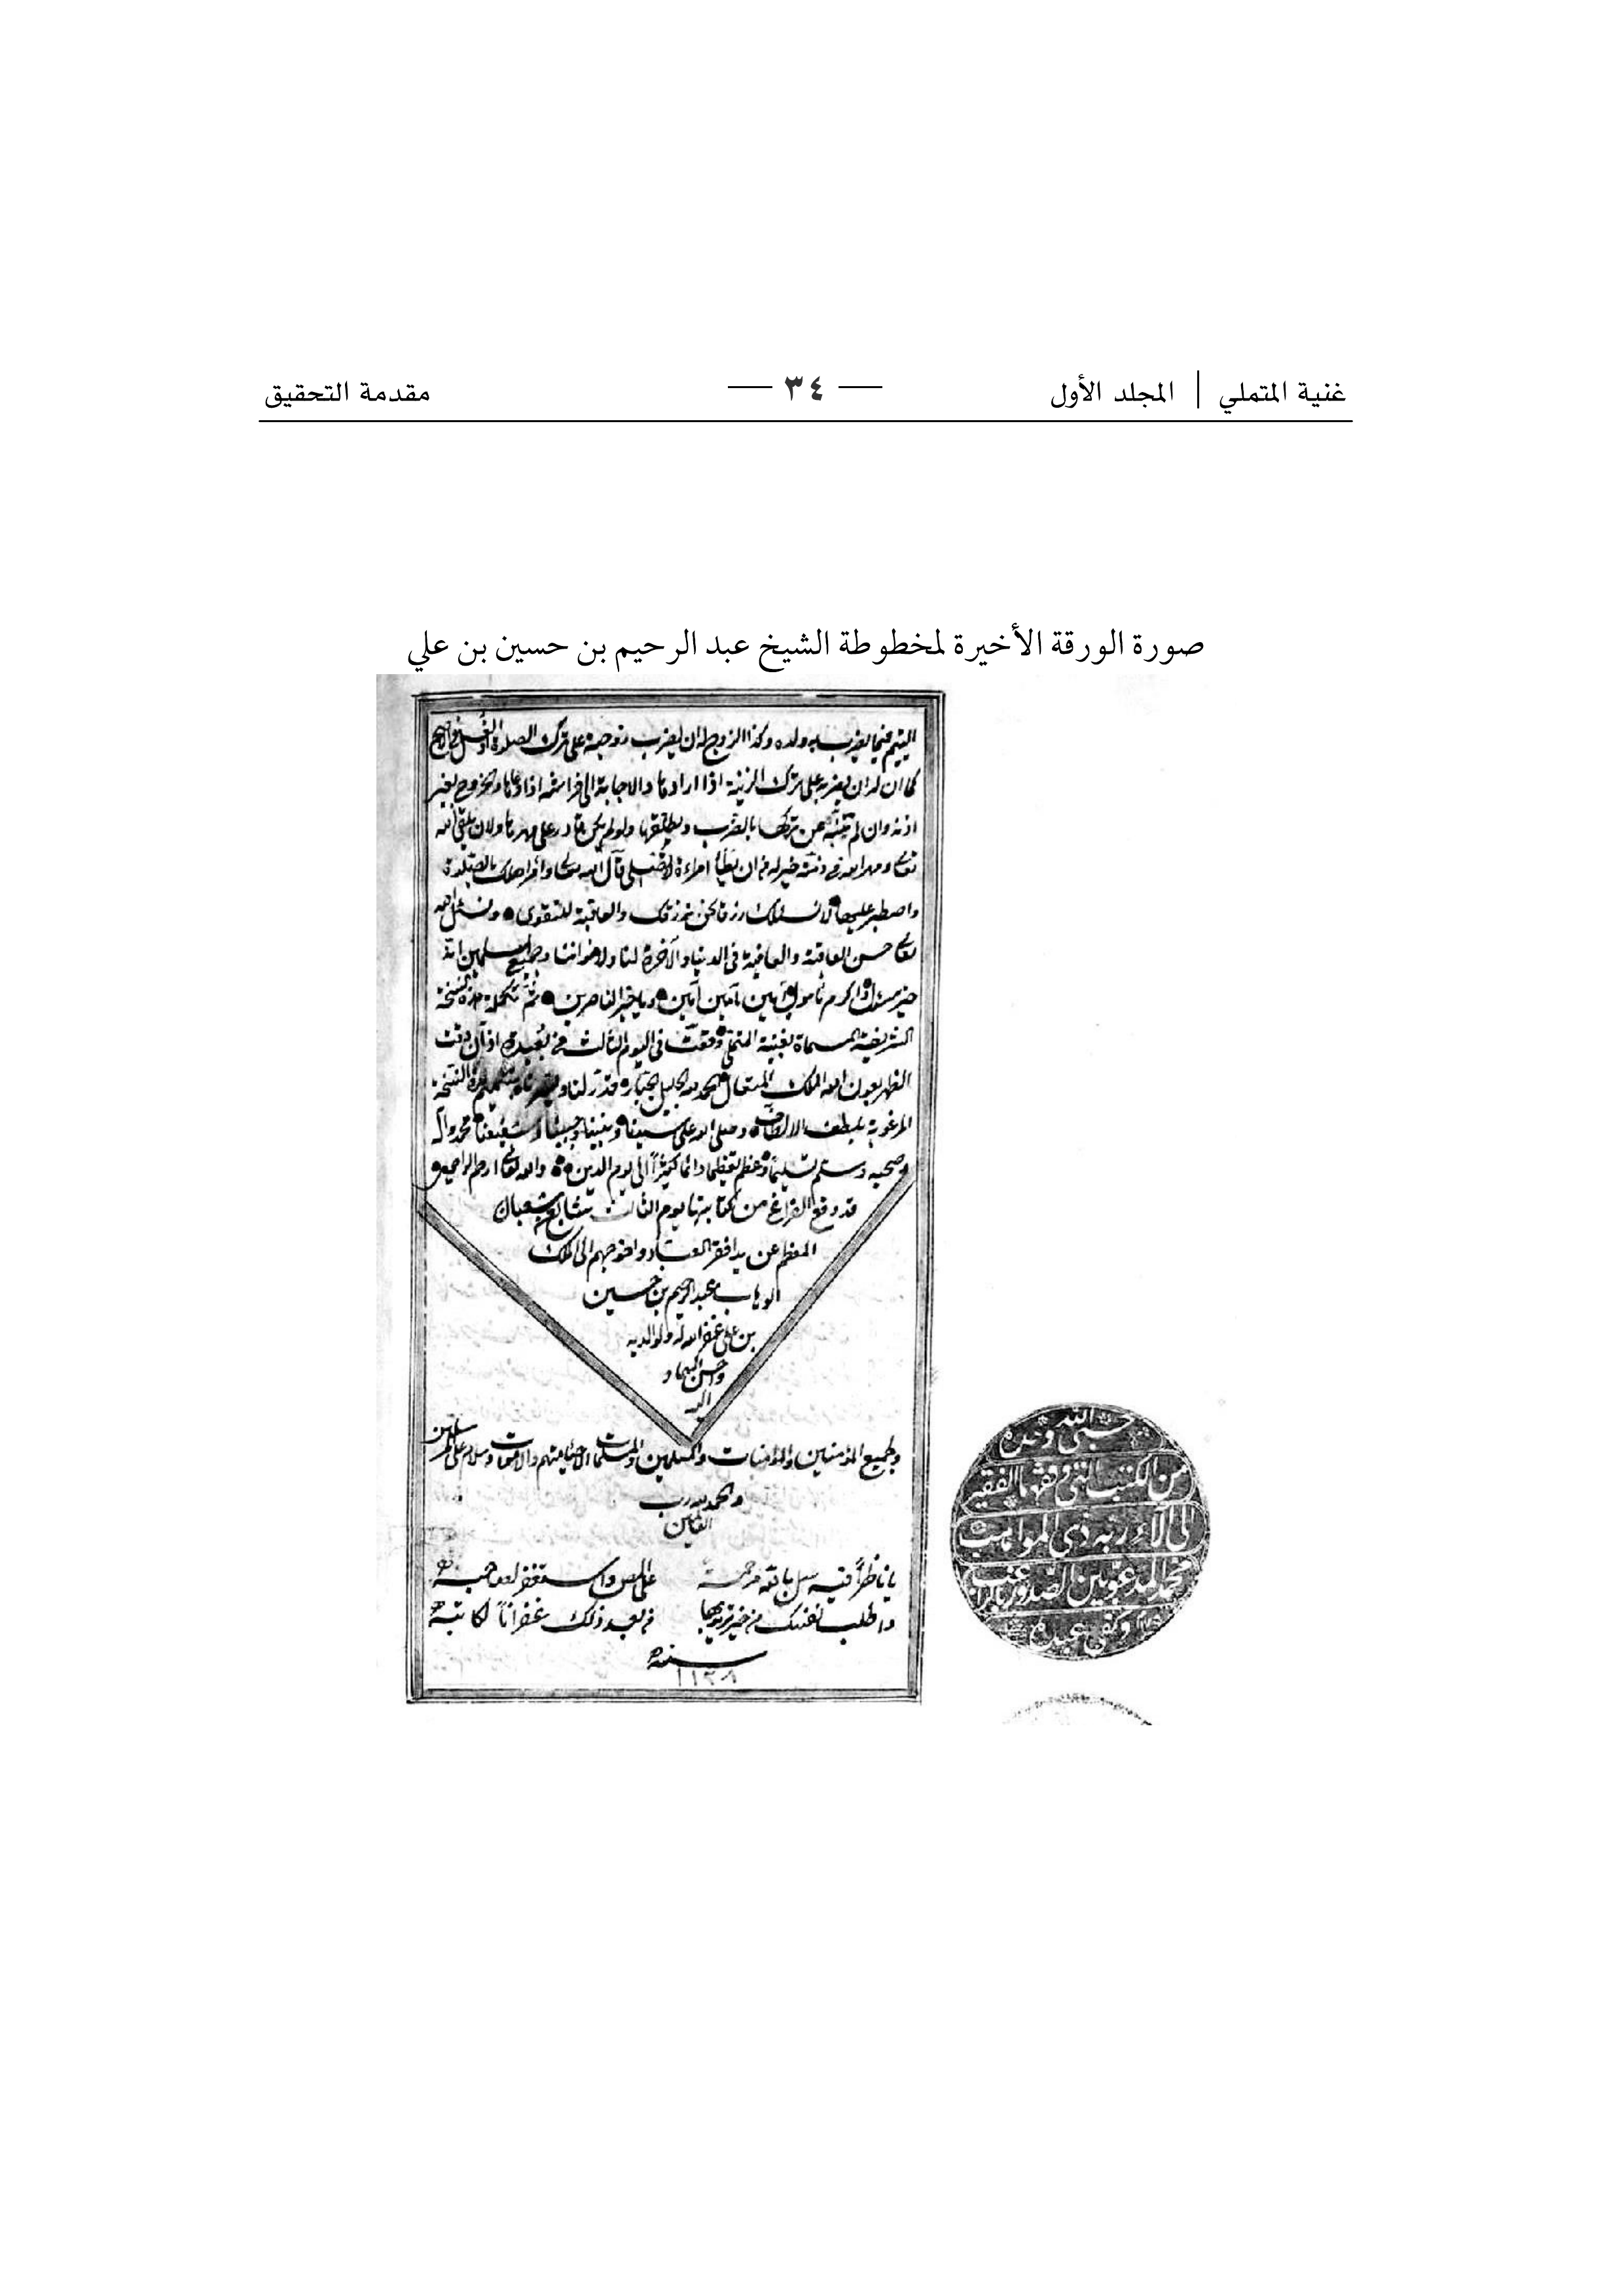 غنية المتملي | المجلد الأول — ٣٤ — مقدمة التحقيق
صورة الورقة الأخيرة لمخطوطة الشيخ عبد الرحيم بن حسين بن علي
اليتيم فيما يضرب به ولده وكذا الزوج له ان يضرب زوجته على ترك الصلوة والغسل في الاصح
كما ان له ان يضربها على ترك الزينة اذا اراد والاجابة الى فراشه اذا دعاها والخروج بغير
اذنه وان لم تنته عن تركها بالضرب يطلقها ولو لم يكن قادرا على مهرها ولان يلقى الله
تعالى ومهرها في ذمته خير له من ان يطأ امراءة لا تصلي قال الله تعالى وأمر اهلك بالصلوة
واصطبر عليها لا نسئلك رزقا نحن نرزقك والعاقبة للتقوى ونسئل الله
تعالى حسن العاقبة والعافية في الدنيا والآخرة لنا ولاخواننا وجميع المسلمين انه
خير مسئول واكرم مأمول آمين يا معين آمين ويا خير الناصرين تم تكملة هذه النسخة
الشريفة المسماة بغنية المتملي وقعت في اليوم الثالث من وقت
الظهر بعون الله الملك المتعال الحمد لله الجليل الجبار قدر لنا هذه النسخة
المرغوبة بلطف الالطاف وصلى الله على سيدنا ونبينا وحبيبنا وشفيعنا محمد وآله
وصحبه وسلم تسليما وعظم تعظيما دائما كثيراً الى يوم الدين والله تعالى ارحم الراحمين
قد وقع الفراغ من كتابتها يوم الثالث شعبان
المعظم عن يد افقر العباد واحوجهم الى الملك
الوهاب عبد الرحيم بن حسين
بن علي غفر الله له ولوالديه
واحسن اليهما و
اليه
ولجميع المؤمنين والمؤمنات والمسلمين والمسلمات الاحياء منهم والاموات وسلام على المرسلين
والحمد لله رب
العالمين
يا ناظراً فيه سل بالله مرحمة على المصنف واستغفر لصاحبه
واطلب لنفسك من خير تريد بها من بعد ذلك غفراناً لكاتبه
سنة
١١٣٨
حسبي الله وحده
من الكتب التي وقفها الفقير
الى آلاء ربه ذي المواهب
محمد المدعو بين الصدور براغب
وكفى عبده